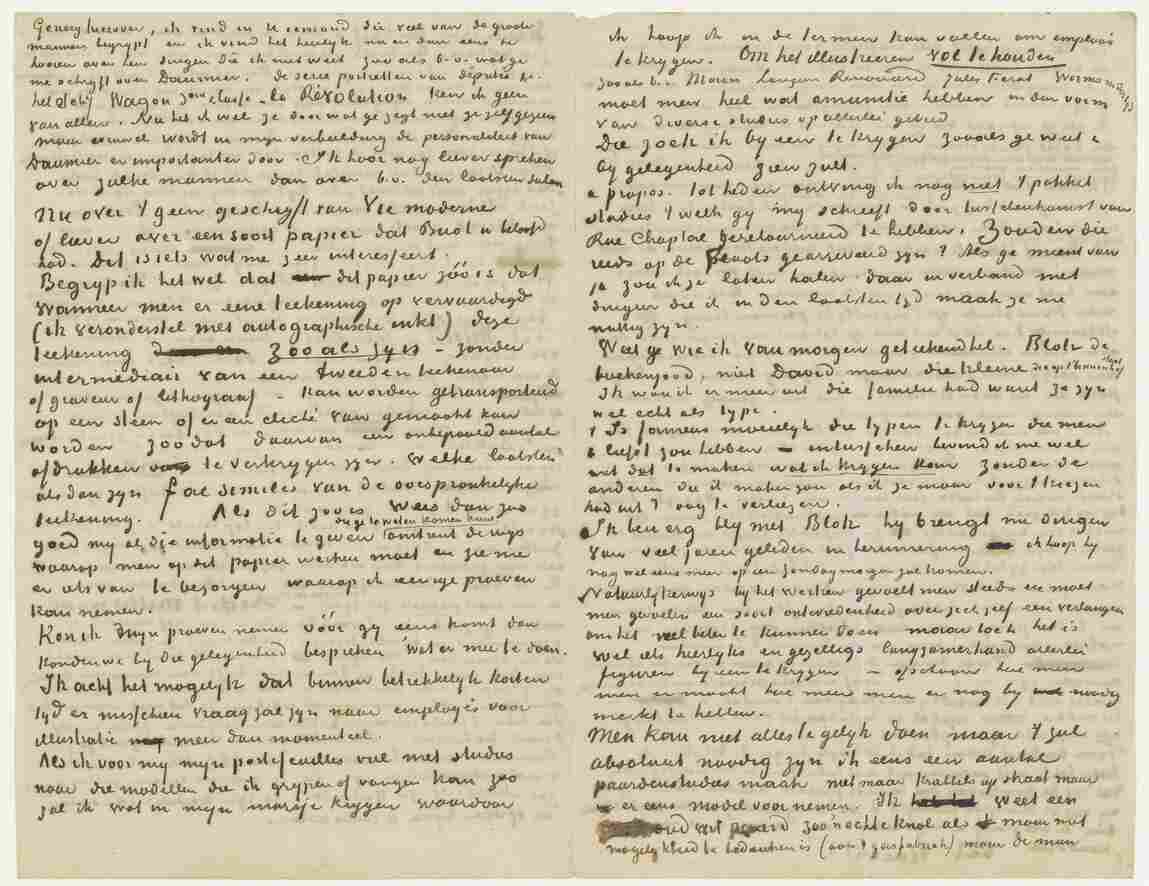 Genoeg hierover, ik vind in U iemand die veel van de groote
mannen begrypt en ik vind het heerlyk nu en dan eens te
hooren over hen dingen die ik niet weet zooals b.v. wat ge
me schryft over Daumier. De serie portretten van deputés &c.
het schij Wagon 3me classe – la Révolution ken ik geen
van allen. Nu heb ik wel je door wat ge zegt niet ze zelf gezien
maar evenwel wordt in myn verbeelding de personaliteit van
Daumier er importanter door. Ik hoor nog liever spreken
over zulke mannen dan over b.v. den laatsten salon
Nu over 't geen ge schryft van Vie moderne
of liever over een soort papier dat Buot U beloofd
had. Dit is iets wat me zeer interesseert.
Begryp ik het wel dat dit papier zóó is dat
wanneer men er eene teekening op vervaardigd
(ik veronderstel met autographische inkt) deze
teekening zooals zy is – zonder
intermediair van een tweeden teekenaar
of graveur of lithograaf – kan worden getransporteerd
op een steen of er een cliché van gemaakt kan
worden zoodat daarvan een onbepaald aantal
afdrukken te verkrygen zyn. Welke laatsten
alsdan zyn facsimilés van de oorspronkelyke
teekening. Als dit zoo is wees dan zoo
goed my al die informatie te geven die ge te weten komen kunt omtrent de wys
waarop men op dit papier werken moet en zie me
er iets van te bezorgen waarop ik eenige proeven
kan nemen.
Kon ik myn proeven nemen vóór gy eens komt dan
konden we by die gelegenheid bespreken wat er mee te doen.
Ik acht het mogelyk dat binnen betrekkelyk korten
tyd er misschien vraag zal zyn naar employés voor
illustratie meer dan momenteel.
Als ik voor my myn portefeuilles vul met studies
naar die modellen die ik grypen of vangen kan zoo
zal ik wat in myn marsje krygen waardoor
ik hoop ik in de termen kan vallen om emplooi
te krygen. Om het illustreeren vol te houden
zooals b.v. Morin Lançon Renouard Jules Ferat Worms
moet men heel wat amunitie hebben in den vorm
van diverse studies op allerlei gebied
Die zoek ik by een te krygen zooals ge weet &
by gelegenheid zien zult.
à propos. Tot heden ontving ik nog niet 't pakket
studies 't welk gy my schreeft door tusschenkomst van
Rue Chaptal geretourneerd te hebben. Zouden die
reeds op de Plaats gearriveerd zyn? Als ge meent van
ja zou ik ze laten halen daar in verband met
dingen die ik in den laatsten tyd maak ze me
nuttig zyn.
Weet ge wie ik van morgen geteekend heb. Blok de
boekenjood, niet David maar die kleine die op 't binnenhof staat
Ik wou ik er meer uit die familie had want ze zyn
wel echt als type.
't Is fameus moeielyk die typen te krygen die men
't liefst zou hebben – intusschen bevind ik me wel
met dat te maken wat ik krygen kan zonder de
anderen die ik maken zou als ik ze maar voor 't kiezen
had uit 't oog te verliezen.
Ik ben erg bly met Blok hy brengt me dingen
van veel jaren geleden in herinnering ik hoop hy
nog wel eens meer op een zondagmorgen zal komen.
Natuurlykerwys by het werken gevoelt men steeds en moet
men gevoelen een soort ontevredenheid over zich zelf een verlangen
om het veel beter te kunnen doen maar toch het is
wel iets heerlyks en gezelligs langzamerhand allerlei
figuren byeen te krygen – ofschoon hoe meer
men er maakt hoe meer men er nog by noodig
merkt te hebben.
Men kan niet alles te gelyk doen maar 't zal
absoluut noodig zyn ik eens een aantal
paardenstudies maak niet maar krabbels op straat maar
er eens model voor nemen. Ik weet een
oud wit paard zoo'n echte knol als maar met
mogelykheid te bedenken is (aan 't gasfabriek) maar de man